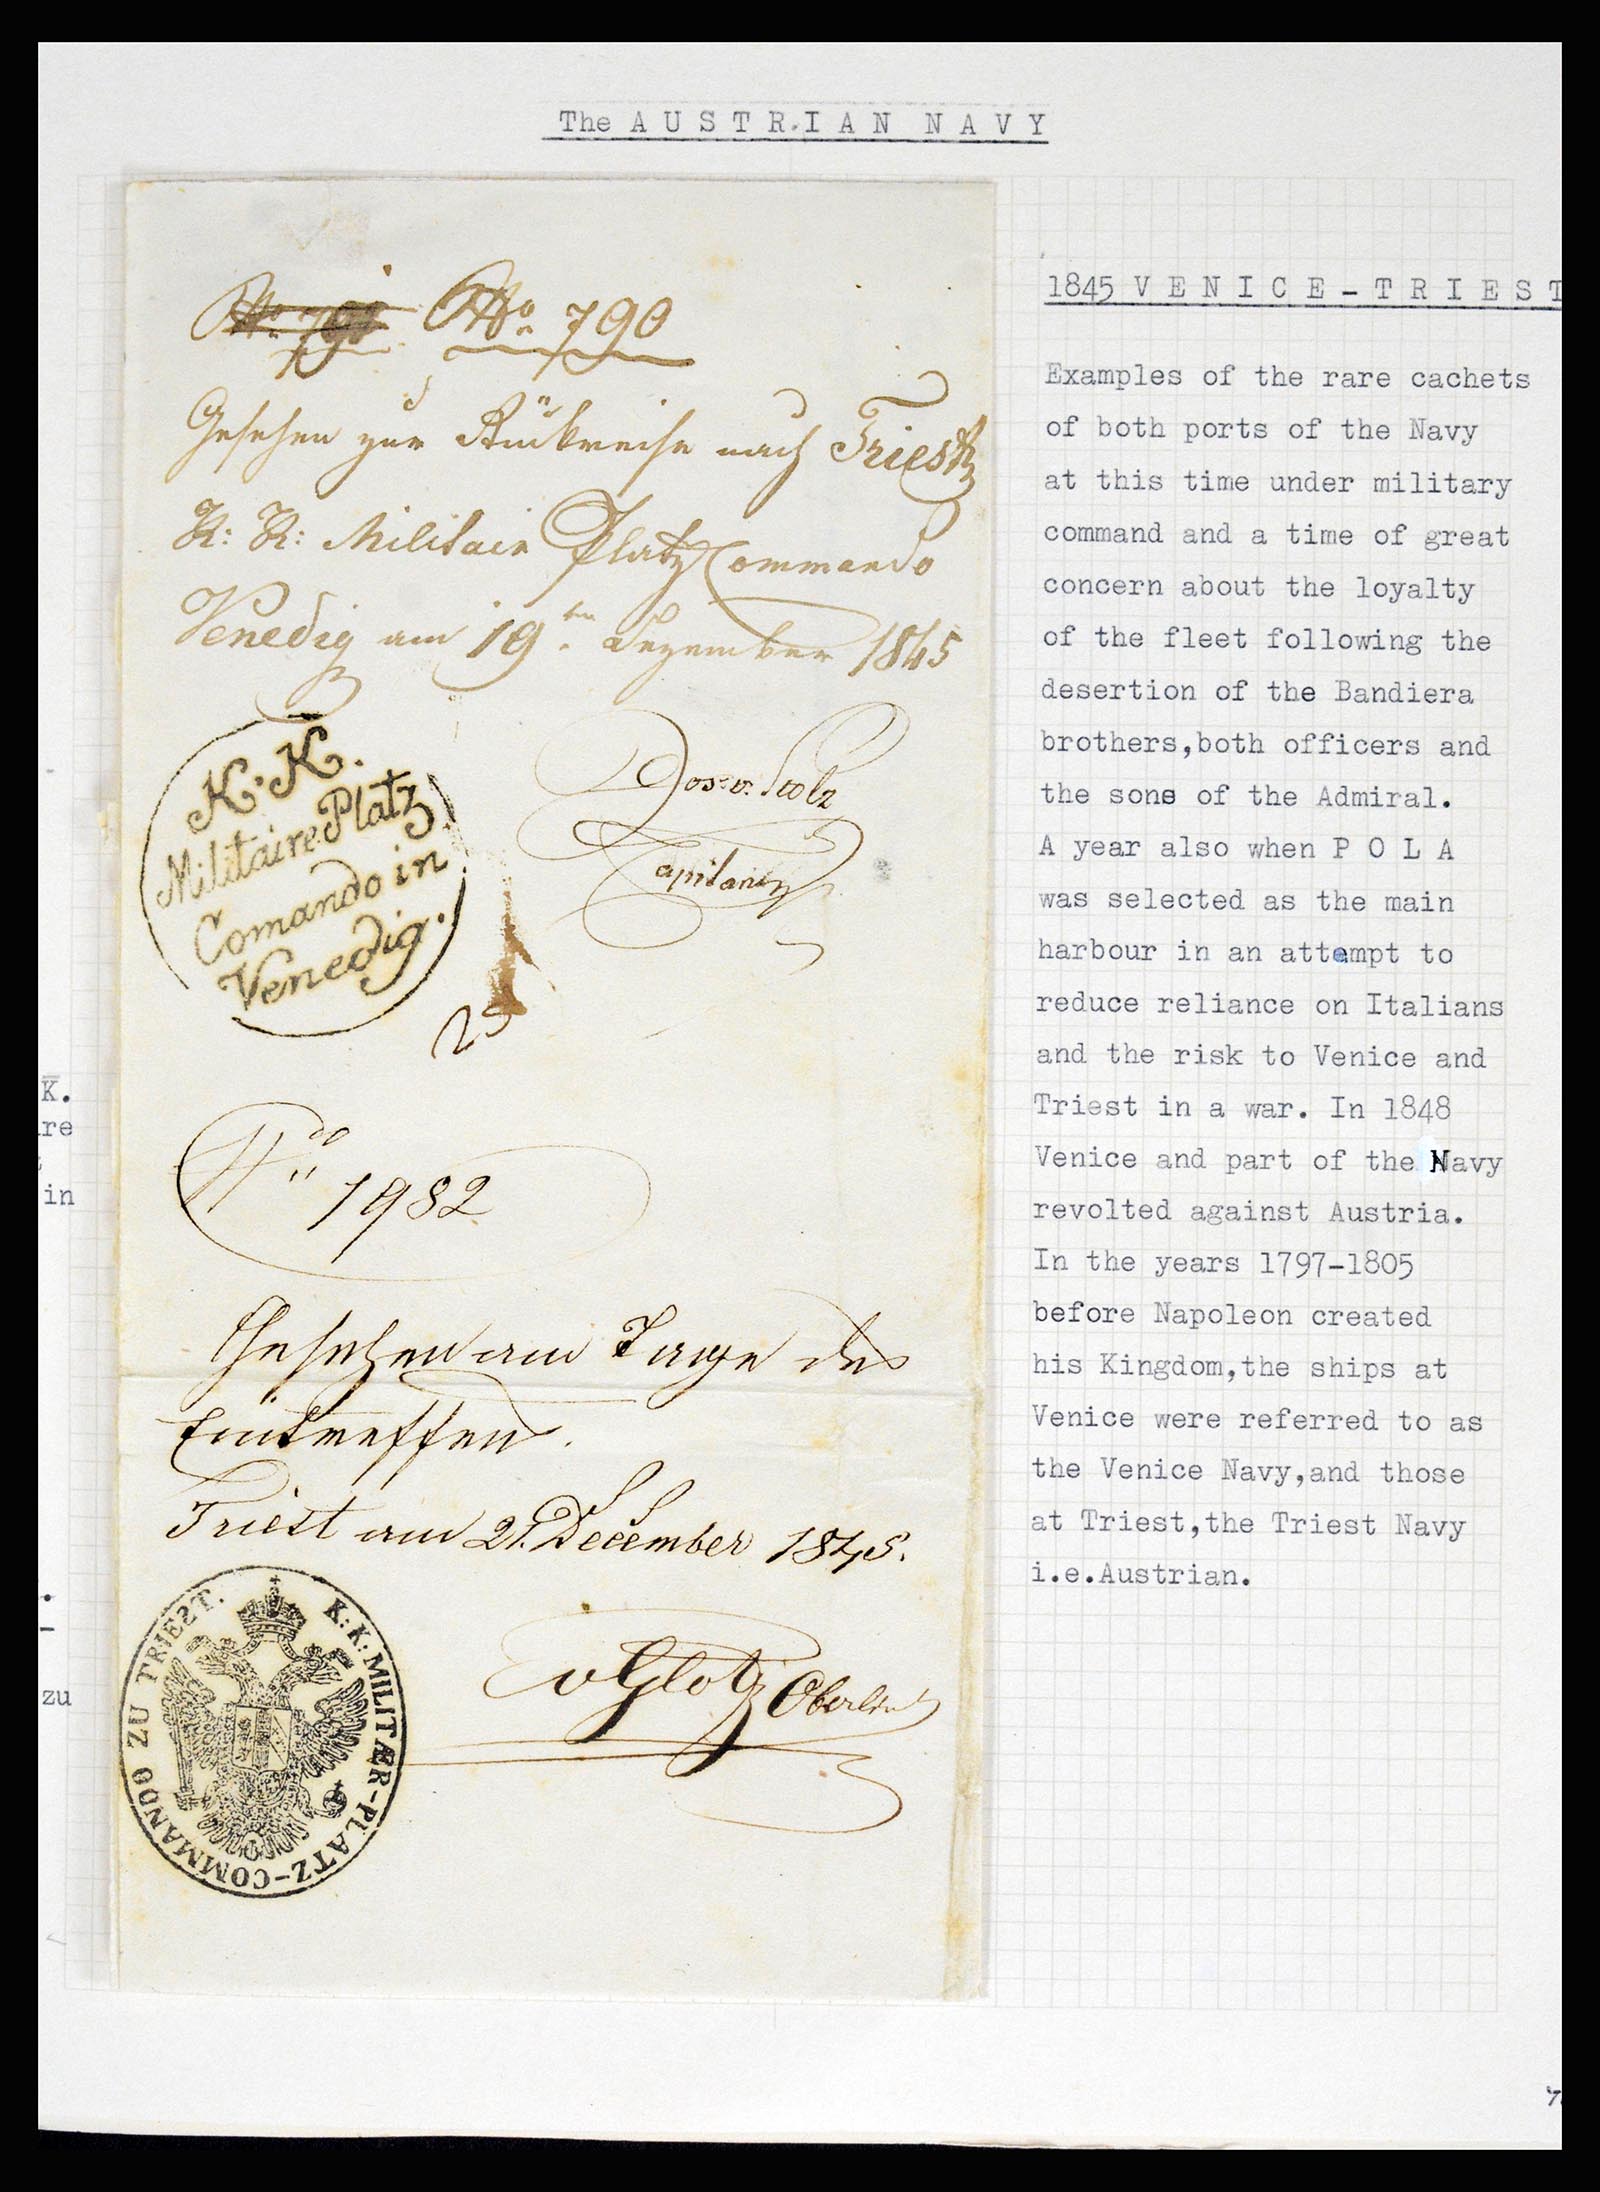 The AUSTRIAN NAVY
No. 790
Gesehen zur Rückreise nach Triest
K: K: Militair Platz Commando
Venedig am 19ten Dezember 1845
K. K.
Militaire Platz
Comando in
Venedig.
25
1982
Gesehen am Tage des
Eintreffens.
Triest am 21. December 1845.
K: K: MILITÆR-PLATZ-COMMANDO ZU TRIEST.
1845 VENICE-TRIEST
Examples of the rare cachets
of both ports of the Navy
at this time under military
command and a time of great
concern about the loyalty
of the fleet following the
desertion of the Bandiera
brothers,both officers and
the sons of the Admiral.
A year also when P O L A
was selected as the main
harbour in an attempt to
reduce reliance on Italians
and the risk to Venice and
Triest in a war. In 1848
Venice and part of the Navy
revolted against Austria.
In the years 1797-1805
before Napoleon created
his Kingdom,the ships at
Venice were referred to as
the Venice Navy,and those
at Triest,the Triest Navy
i.e.Austrian.
K.
re
in
zu